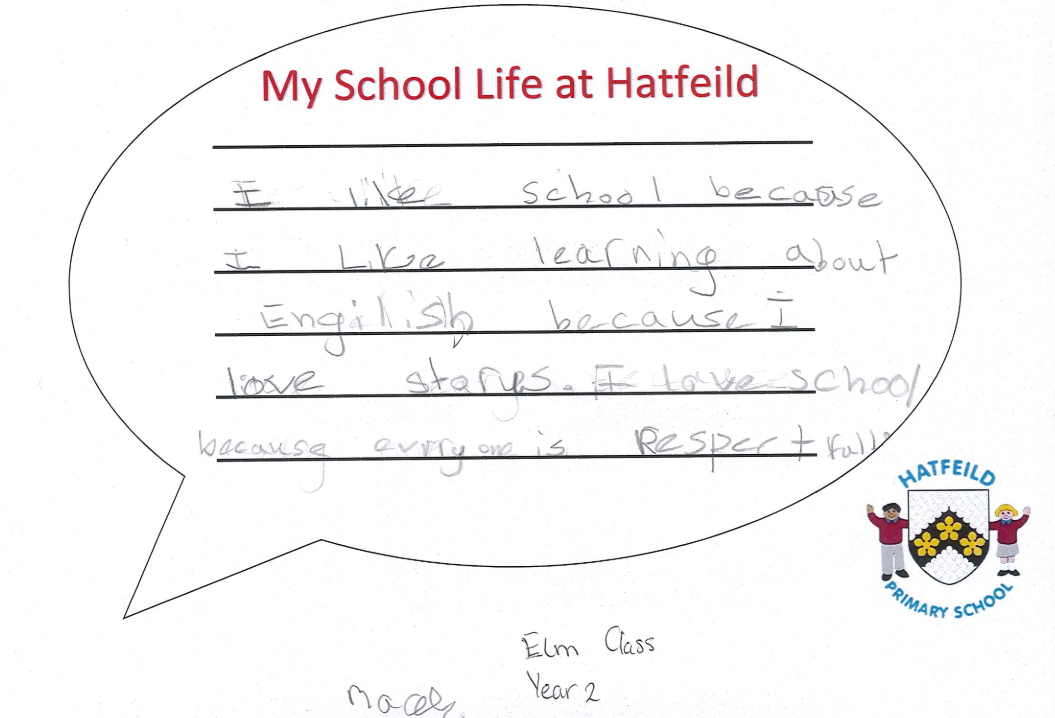 My School Life at Hatfeild
I like school because
I Like learning about
Engilish because I
love storys. I love school
because everyone is Respect full.
HATFEILD
PRIMARY SCHOOL
Elm Class
Year 2